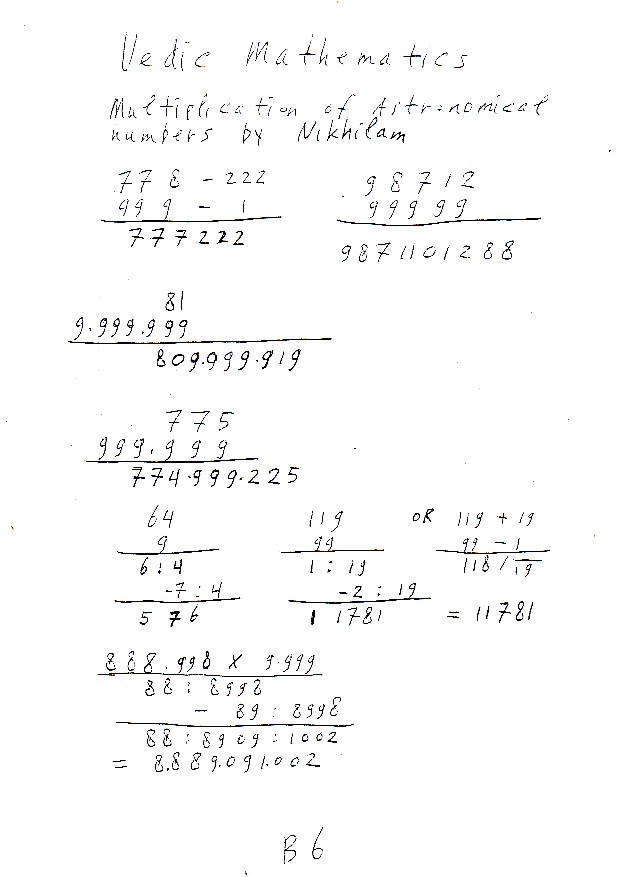 Vedic Mathematics
Multiplication of Astronomical
numbers by Nikhilam
778 - 222
999 - 1
777222
98712
99999
9871101288
81
9.999.999
809.999.919
775
999.999
774.999.225
64
9
6 : 4
-7 : 4
576
119
99
1 : 19
-2 : 19
11781
OR 119 + 19
99 - 1
118 / 19
= 11781
888.998 x 9.999
88 : 8998
- 89 : 8998
88 : 8909 : 1002
= 8.889.091.002
B 6